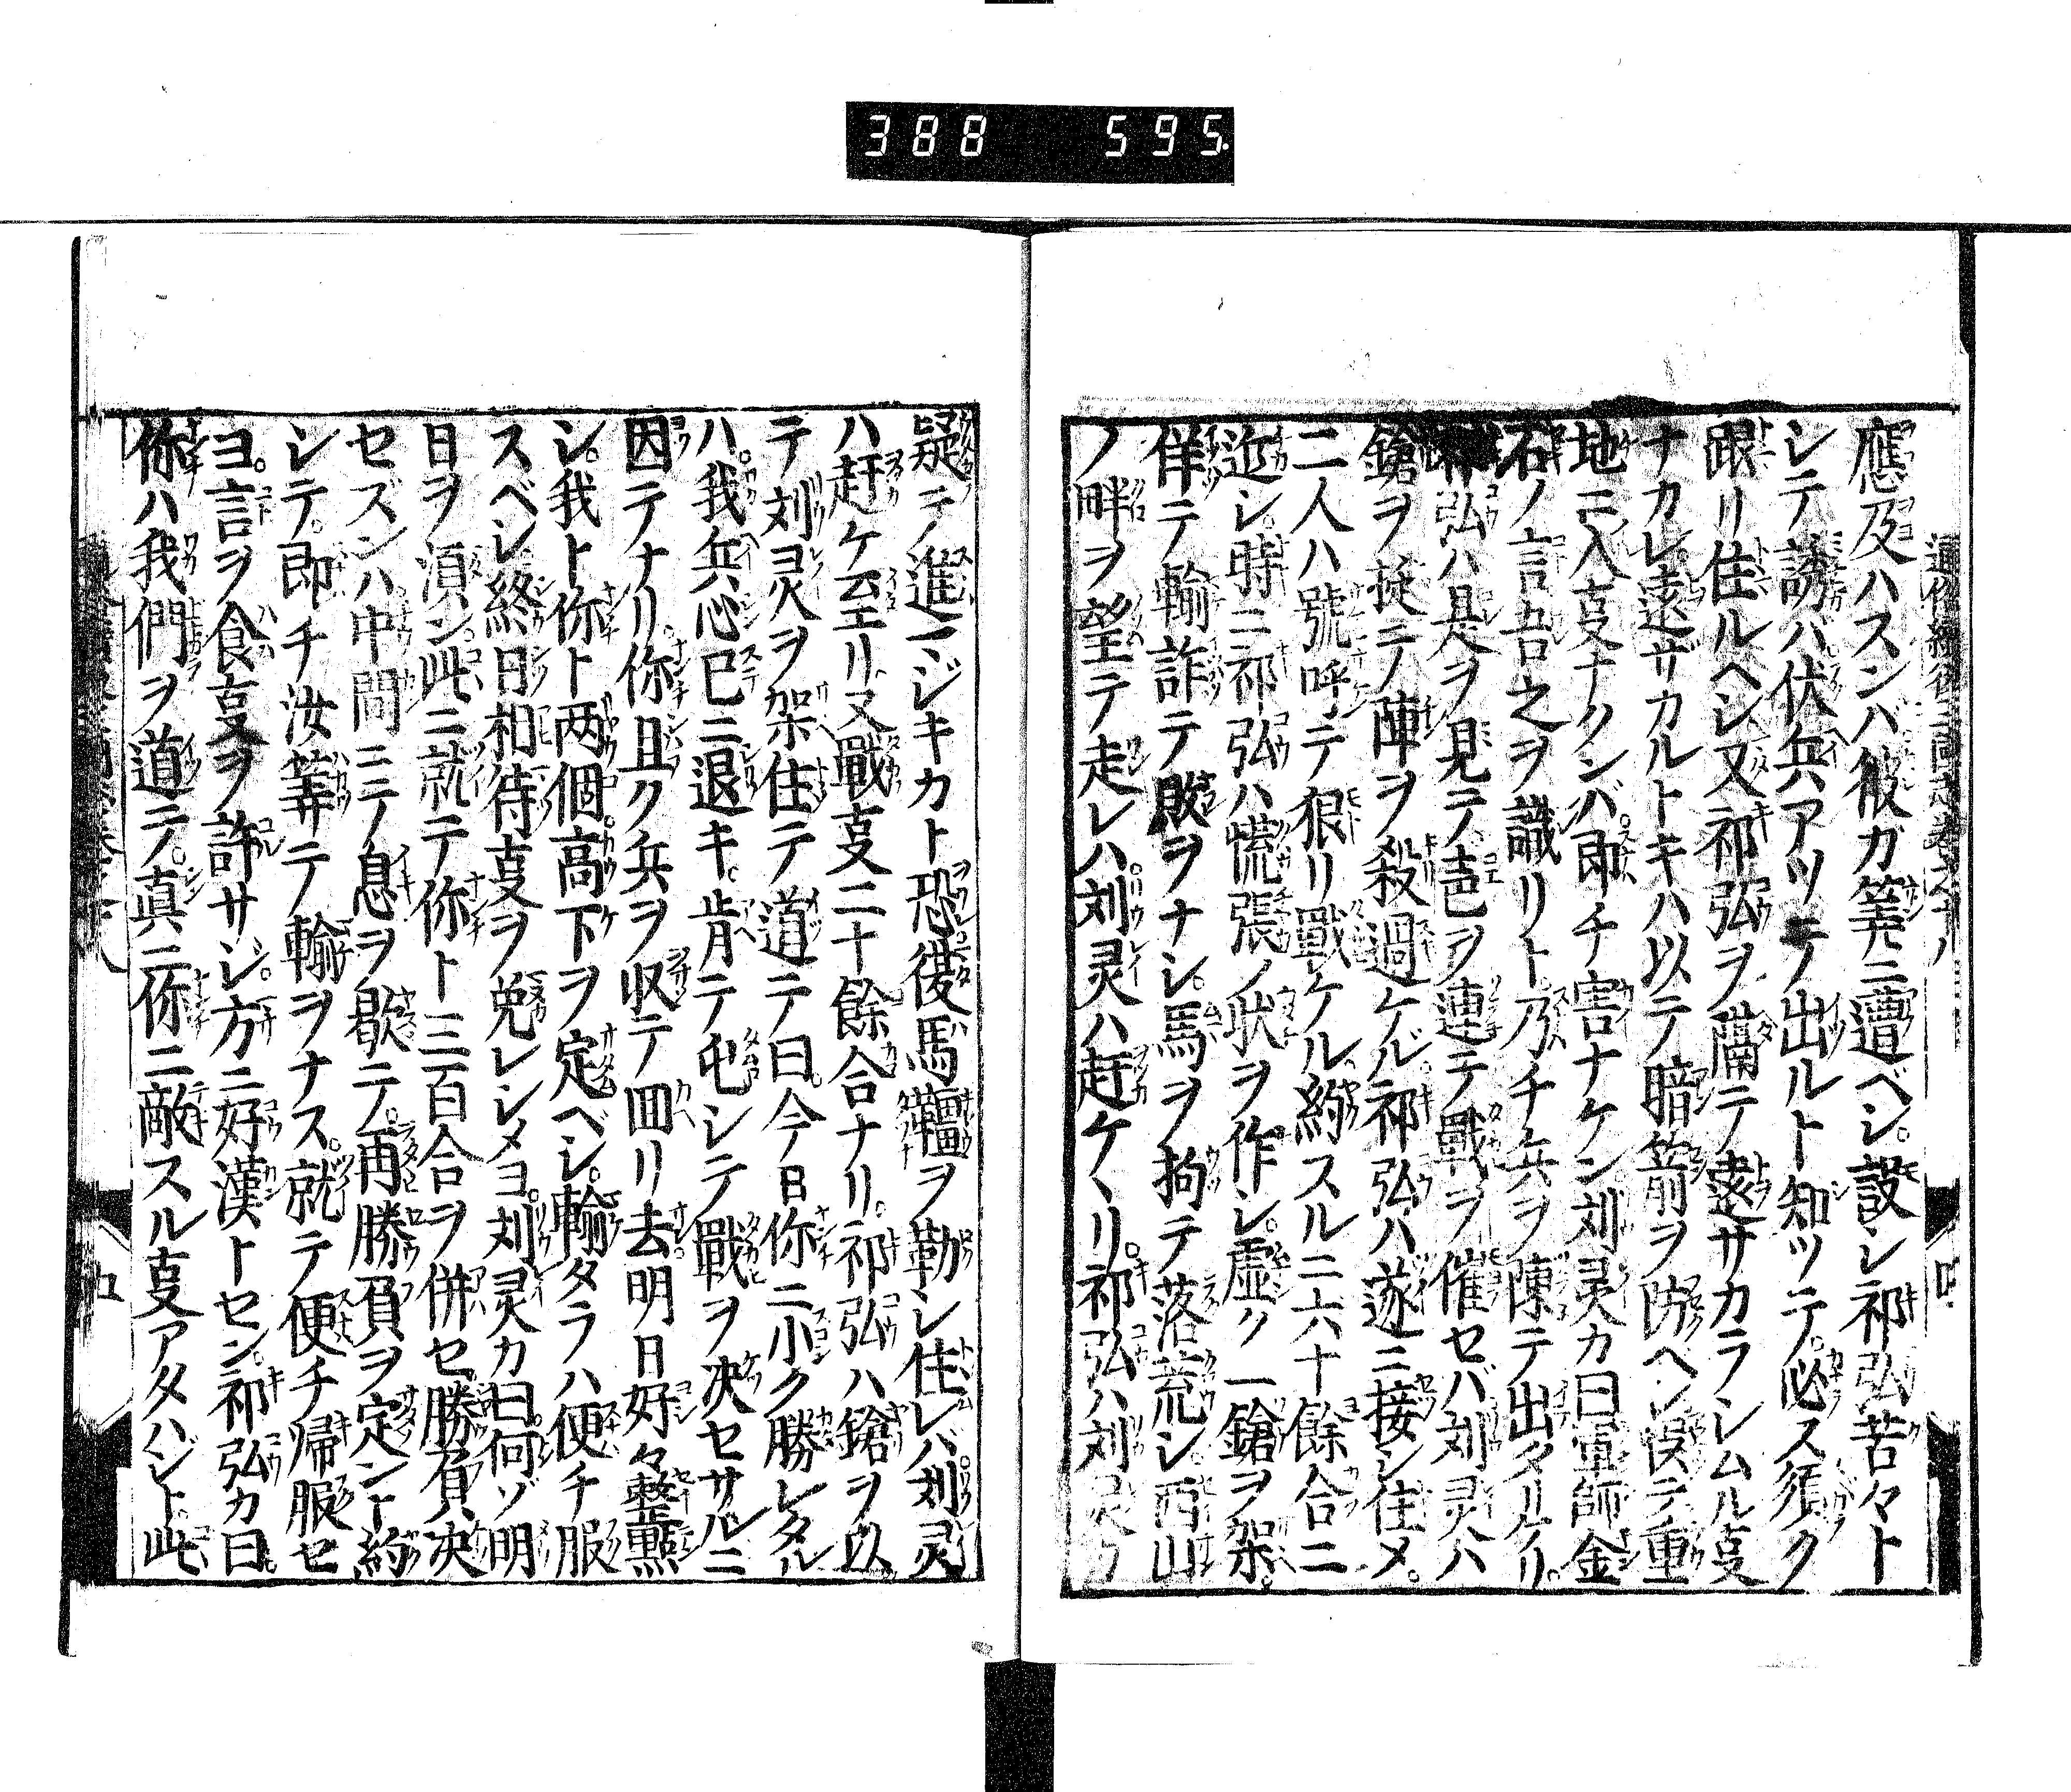 388 595
應及ハスンバ彼ガ筭ニ遭ベシ。設シ祁弘苦々ト
シテ誘ハ伏兵アツテ出ルト知ツテ。必ス須ク
跟リ住ルヘシ又祁弘ヲ蘭テ遠サカラシムル叓
ナカレ遠ザカルトキハ以テ暗箭ヲ防ヘシ誤テ重
地ニ入叓ナクンバ。即チ害ナケン刘灵カ曰軍師金
石ノ言吾之ヲ識リト。乃チ兵ヲ陳テ出タリケリ。
祁弘ハ是ヲ見テ。皷ヲ連テ戰ヲ催セバ刘灵ハ
鎗ヲ挺テ陣ヲ殺過ケル。祁弘ハ遂ニ接シ住メ。
二人ハ號呼テ狠リ戰ケル。約スル二六十餘合ニ
近シ。時ニ祁弘ハ慌張ノ状ヲ作シ。虚ク一鎗ヲ架。
佯テ輸詐テ敗ヲナシ。馬ヲ拘テ落荒シ西山
ノ畔ヲ望テ走レハ刘灵ハ赶ケヽリ。祁弘ハ刘灵カ
疑テ進マジキカト恐後馬韁ヲ勒シ住レバ刘灵
ハ赶ケ至リ又戰叓二十餘合ナリ。祁弘ハ鎗ヲ以
テ刘灵ヲ架住テ道テ曰。今日你ニ小ク勝レタル
ハ。我兵心已ニ退キ。肯テ屯シテ戰ヲ决セサルニ
因テナリ。你且ク兵ヲ収テ回リ去明日好々整㸃
シ。我ト你ト两個高下ヲ定ベシ。輸タラハ便チ服
スベシ終日和待叓ヲ免レシメヨ。刘灵カ曰。何ゾ明
日ヲ湏ン此ニ就テ你ト三百合ヲ併セ勝負决
セズンハ中間ニテ息ヲ歇テ。再勝負ヲ定ント約
シテ。即チ汝等テ輸ヲナス。就テ便チ帰服セ
ヨ。言ヲ食叓ヲ許サジ。方ニ好漢トセン。祁弘カ曰。
你ハ我們ヲ道テ。真ニ你ニ敵スル叓アタハジト此